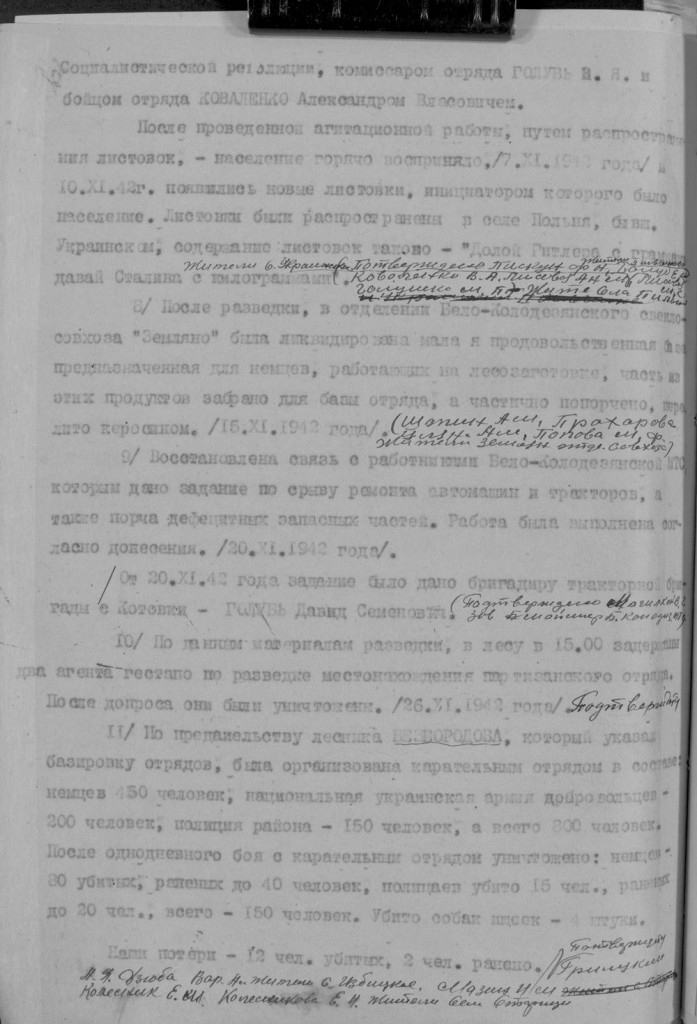 Социалистической революции, комиссаром отряда ГОЛУБЬ Я. и
бойцом отряда КОВАЛЕНКО Александром Власовичем.
После проведенной агитационной работы, путем распростране
ния листовок, - население горячо восприняло,/7.XI.1942 года/ и
10.XI.42г. появились новые листовки, инициатором которого было
население. Листовки были распространены в селе Польня,
Украинском, содержание листовок таково - "Долой Гитлера с
давай Сталина с килограммами
Жители с. Подтверждено
Коваленко В.А.
8/ После разведки, в отделении Бело-Колодезянского свекло-
совхоза "Земляно" была ликвидирована мала я продовольственная база
предназначенная для немцев, работающих на лесозаготовке, часть из
этих продуктов забрано для базы отряда, а частично попорчено,
лито керосином. /15.XI.1942 года/.
(Шапкин А.М, Прохорова
А.М, Попова М.Ф.
жители Землян. отде. совхоза)
9/ Восстановлена связь с работниками Бело-Колодезянской МТС
которым дано задание по срыву ремонта автомашин и тракторов, а
также порча дефецитных запасных частей. Работа была выполнена сог-
ласно донесения. /20.XI.1942 года/.
От 20.XI.42 года задание было дано бригадиру тракторной бри
гады с Котовки - ГОЛУБЬ Давид Семенович. (Подтверждено
10/ По данным материалам разведки, в лесу в 15.00 задержаны
два агента гестапо по разведке местонахождения партизанского отряда.
После допроса они были уничтожены. /26.XI.1942 года/
11/ По предательству лесника БЕЗБОРОДОВА, который указал
базировку отрядов, была организована карательным отрядом в составе:
немцев 450 человек, национальная украинская армия добровольцев -
200 человек, полиция района - 150 человек, а всего 800 человек.
После однодневного боя с карательным отрядом уничтожено: немцев -
80 убитых, раненых до 40 человек, полицаев убито 15 чел., раненых
до 20 чел., всего - 150 человек. Убито собак ищеек - 4 штуки.
Наши потери - 12 чел. убитых, 2 чел. ранено.
Дзюба Вар. жители с. Избицкое,
Колесник Е. Колесникова Е. И. Жители села Старица